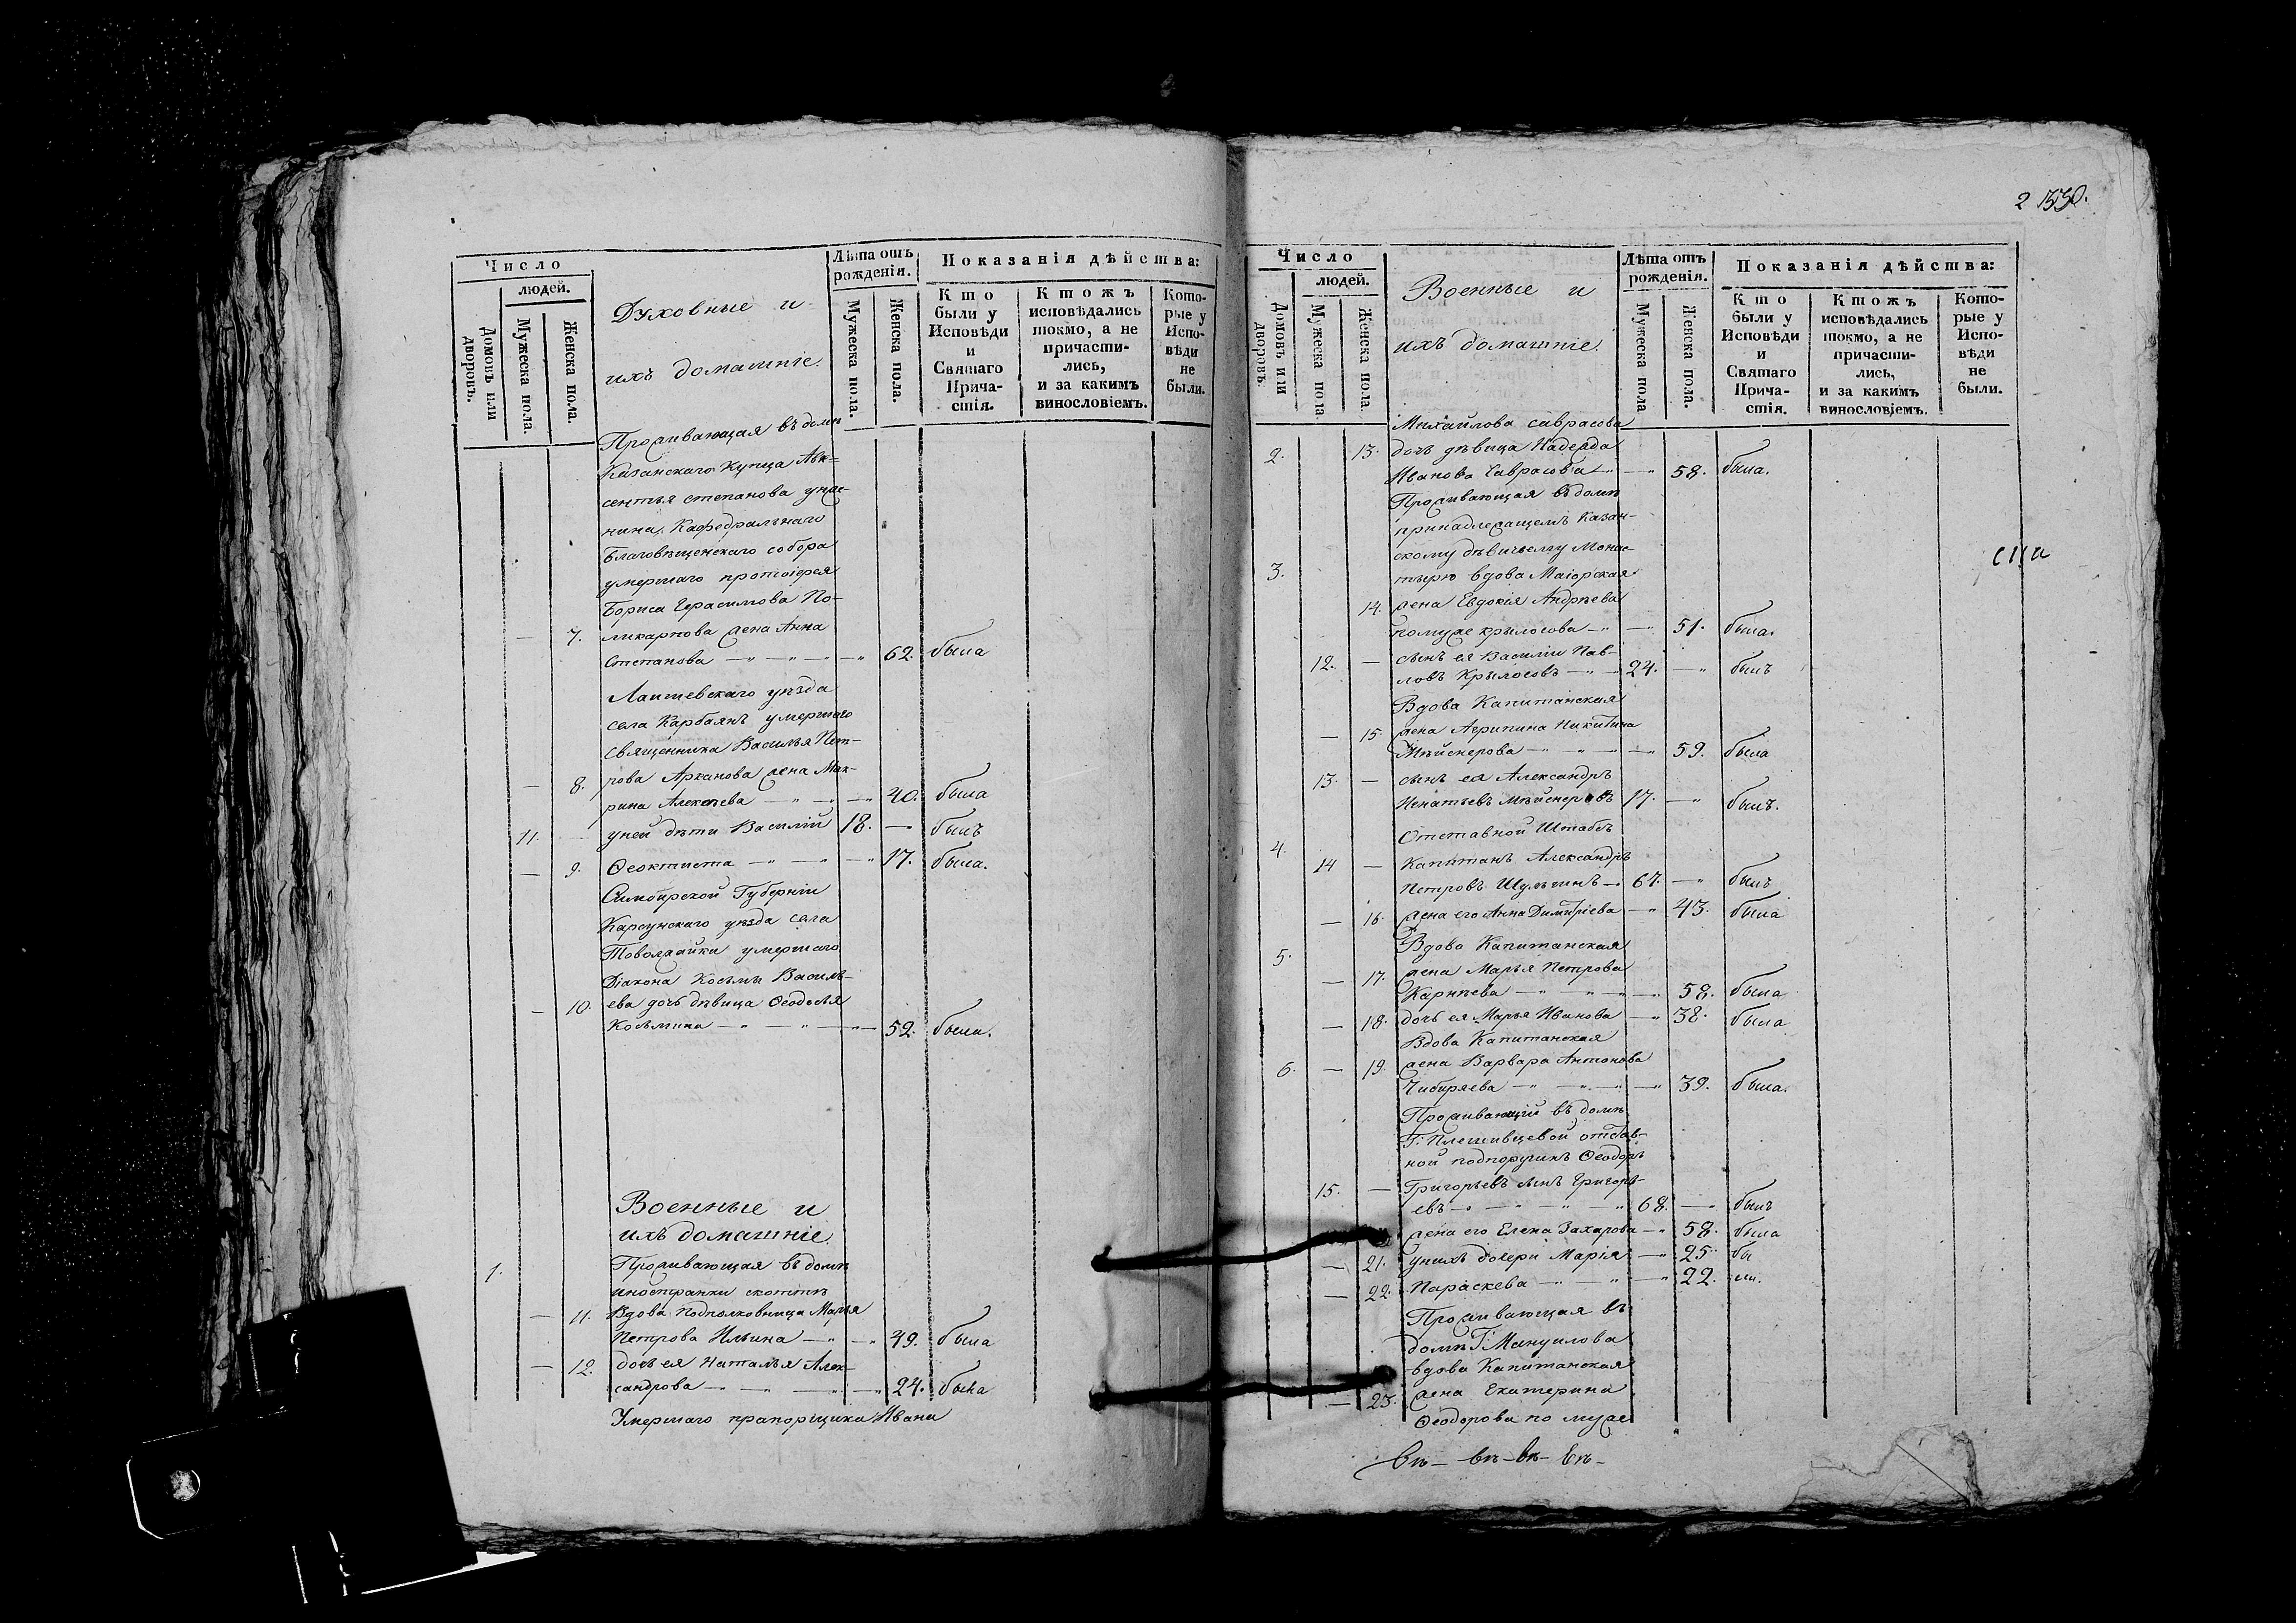 Число
людей.
Домовъ или дворовъ.
Мужеска пола.
Женска пола.
Духовные и
ихъ домашніе.
Лѣта отъ рожденія.
Мужеска пола.
Женска пола.
Показанія дѣйства:
Кто были у Исповѣди и Святаго Прича-стія.
Ктожъ исповѣдались токмо, а не причасти-лись, и за какимъ винословіемъ.
Кото-рые у Испо-вѣди не были.
Проживающая въ домѣ
Казанскаго Купца Авк=
сентья степанова уне-
нина, Кафедральнаго
Благовѣщенскаго собора
умершаго протоіерея
Бориса Герасимова По-
— 7. ликарпова жена Анна
Степанова — — — 62. была
Лаишевскаго уѣзда
села Карбаянъ умершаго
священника Василья Пет-
— 8. рова Арканова жена Мак-
рина Алексѣева — — — 40. была
11. — уней дѣти Василій 18. — былъ
— 9. Ѳеоктиста — — — 17. была.
Симбирской Губерніи
Карсунскаго уѣзда села
Товолжайки умершаго
Діакона Косьмы Василь-
— 10. ева дочь дѣвица Ѳеодосья
Косьмина — — — 52. была.
Военные и
ихъ домашніе.
1. Проживающая въ домѣ
иностранки скоттъ
— 11. Вдова Подполковница Марья
Петрова Ильина — — 49. была
— 12. дочь ея Наталья Алек-
сандрова — — — — 24. была
Умершаго прапорщика Ивана
2 330.
Число
людей.
Домовъ или дворовъ.
Мужеска пола.
Женска пола.
Военные и
ихъ домашніе.
Лѣта отъ рожденія.
Мужеска пола.
Женска пола.
Показанія дѣйства:
Кто были у Исповѣди и Святаго Прича-стія.
Ктожъ исповѣдались токмо, а не причасти-лись, и за какимъ винословіемъ.
Кото-рые у Испо-вѣди не были.
Михайлова саврасова
2. 13. дочь дѣвица Надежда
Иванова Саврасова — — 58. была.
Проживающая въ домѣ
принадлежащемъ Казан-
скому дѣвичьему Монас-
3. тырю вдова Маіорская
14. жена Евдокія Андрѣева
помуже крылосова — — 51. была.
12. — сынъ ея Василій Пав-
ловъ Крылосовъ — 24. — былъ
Вдова Капитанская
— 15 жена Агрипина Никитина
Мѣйснерова — — — 59. была
13. — сынъ ея Александръ
Игнатьевъ Мѣйснеровъ 17. — былъ.
Отставной Штабсъ
4. 14 — Капитанъ Александръ
Петровъ Шульгинъ — 67. — былъ
— 16. жена его Анна Димитріева — 43. была
5. Вдова Капитанская
— 17. жена Марья Петрова
Карпѣева — — — 58. была
— 18. дочь ея Марья Иванова — 38. была
Вдова Капитанская
6. — 19. жена Варвара Антонова
Чибиряева — — — 39. была.
Проживающій въ домѣ
Г: Плешивцевой отстав-
ной подпоручикъ Ѳеодоръ
15. — Григорьевъ сынъ Григорь-
евъ — — — — 68. — былъ
жена его Елена Захарова — 58. была
— 21. унихъ дочери Марія — 25. бы
— 22. Параскева — — — 22. ли.
Проживающая въ
домѣ Г: Мануилова
вдова Капитанская
— 23. жена Екатерина
Ѳеодорова по муже